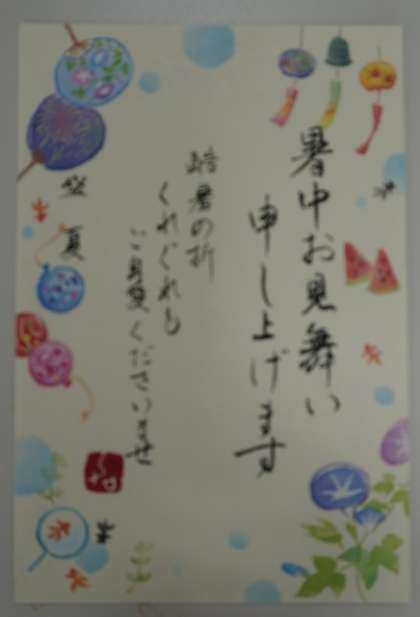 暑中お見舞い
申し上げます
酷暑の折
くれぐれも
ご自愛くださいませ
盛夏